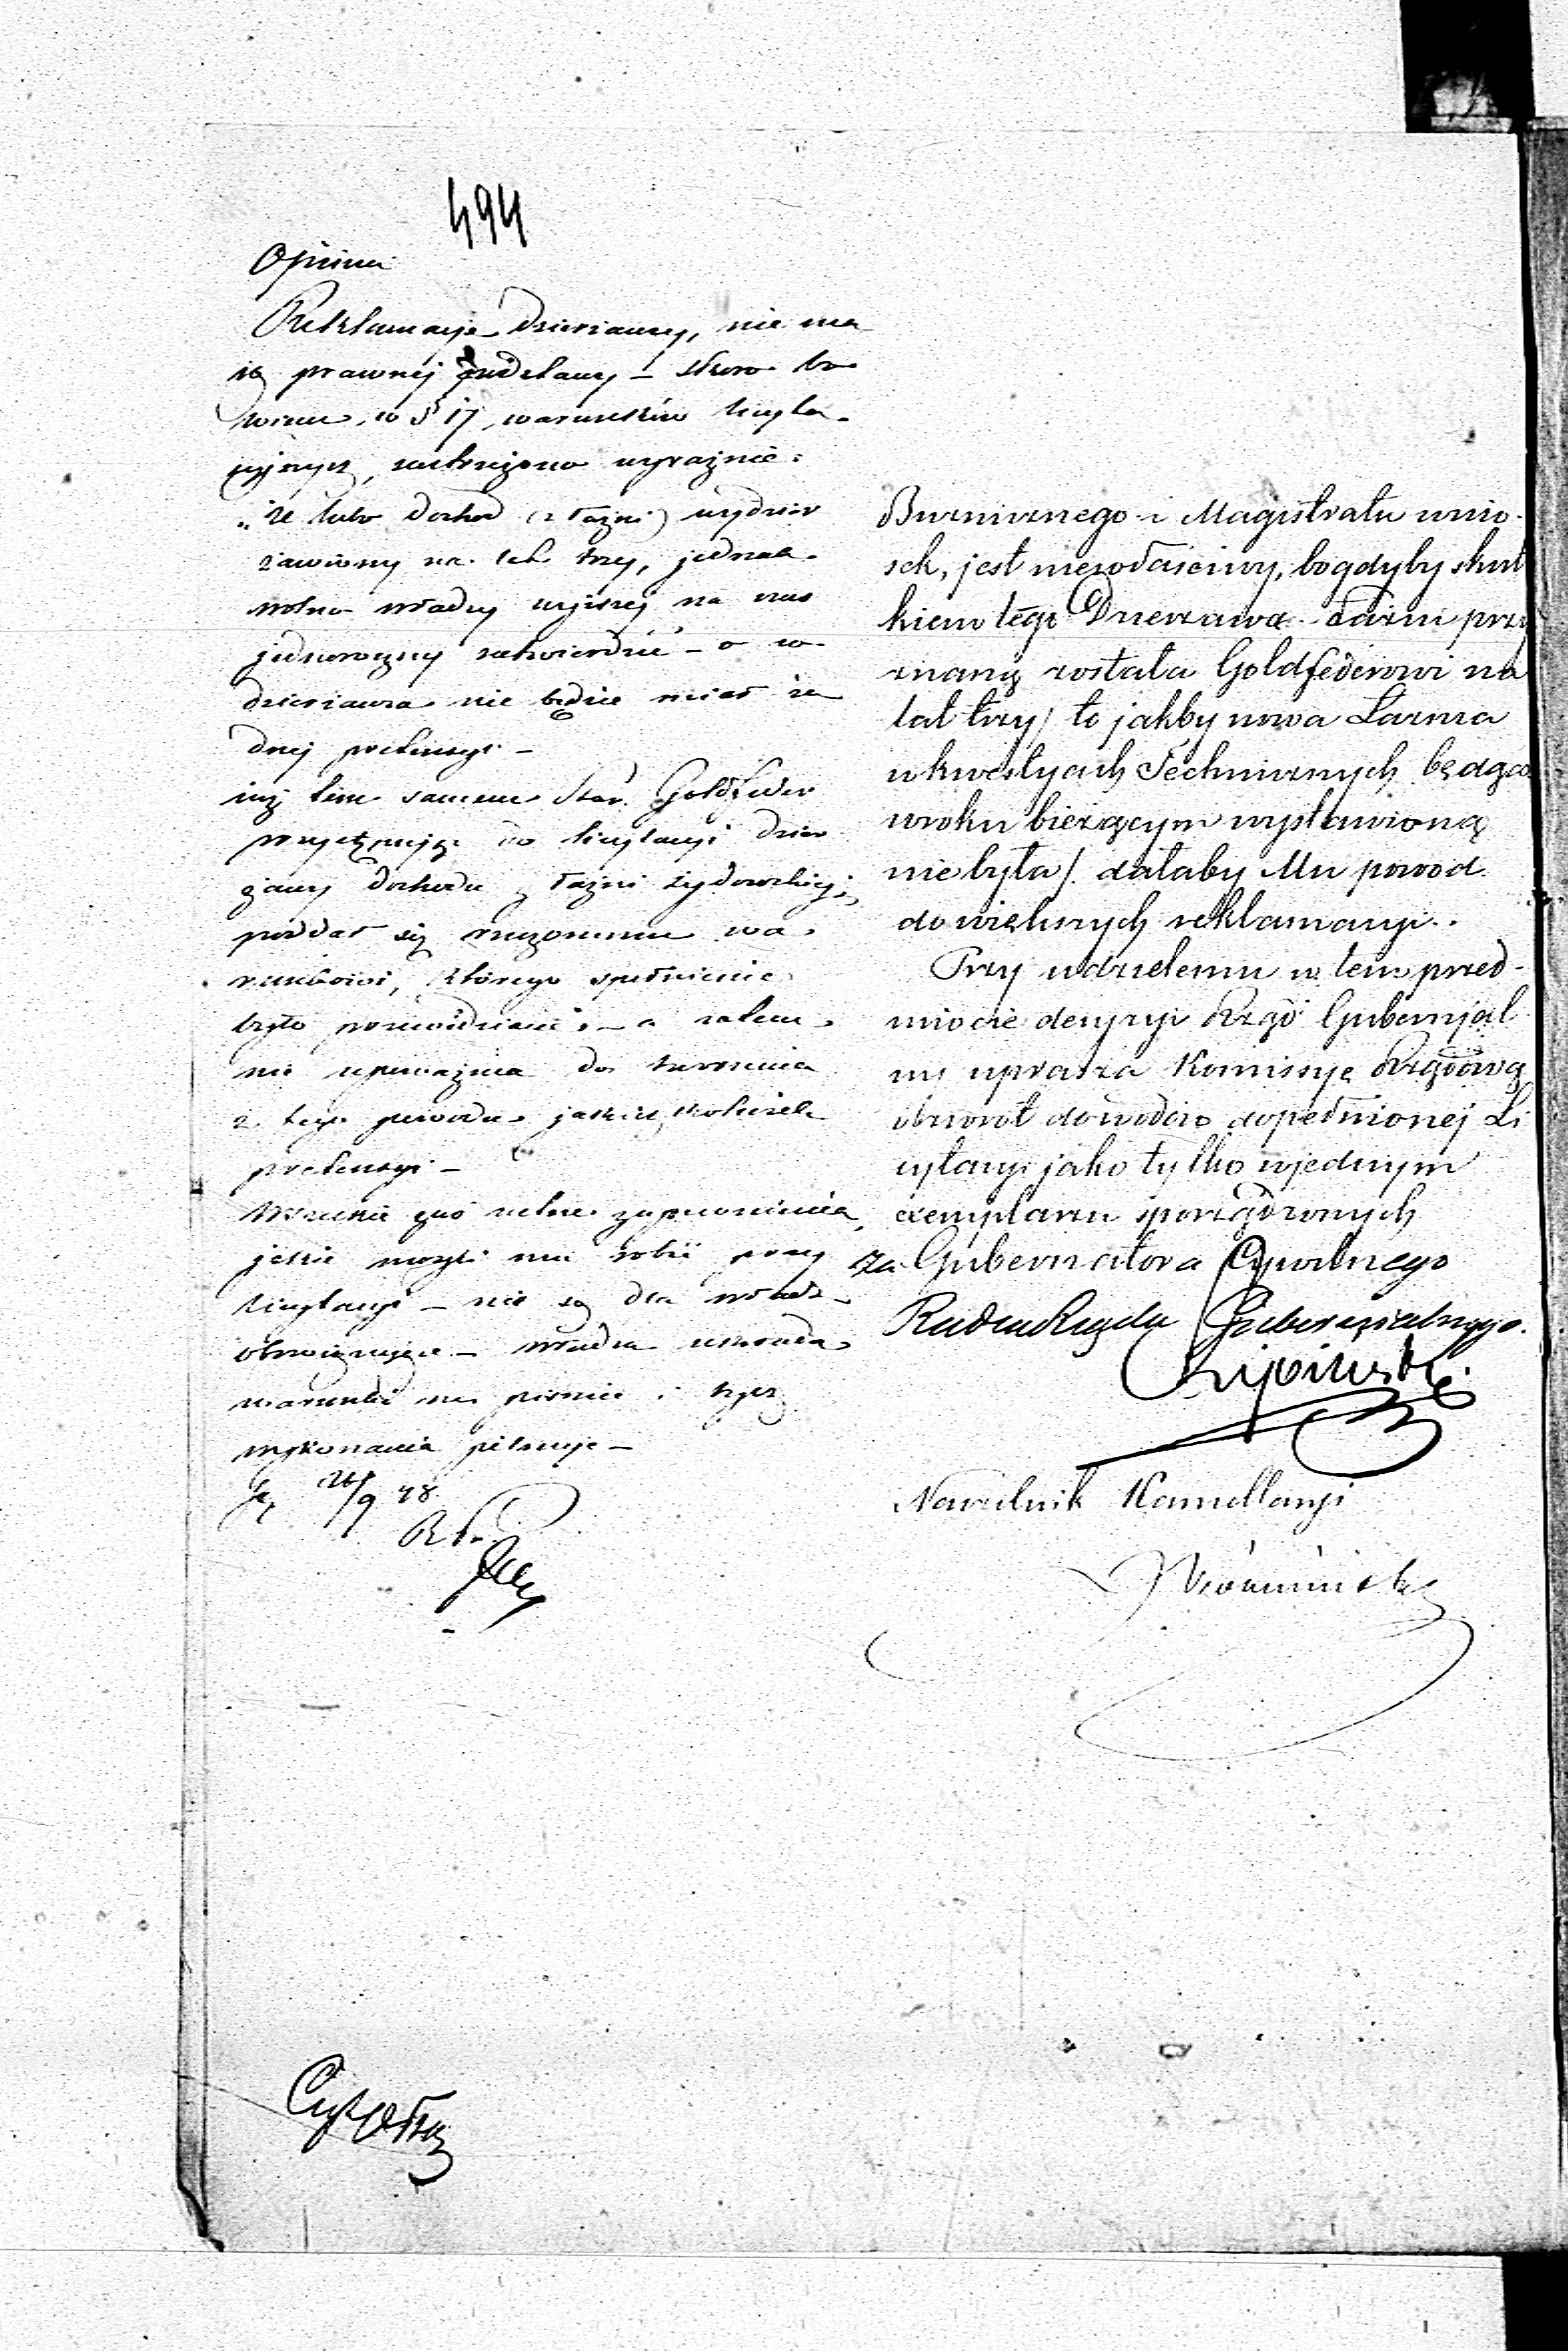 494
Opinia
Reklamacje Dzierżawcy, nie ma
ią prawnej podstawy – skoro bo
wiem, w § 17, warunków licyta-
cyjnych, zastrzeżono wyraźnie:
„że lubo dochod (z łaźni) wydzier
żawiony na lat trzy, jednak
wolno władzy wyższej na czas
jednoroczny zatwierdzić – o co
dzierżawca nie będzie miał ża
dnej pretensyi –
tem samem Star. Goldfeder
przystępując do licytacyi dzier
żawy dochodu z łaźni żydowskiej,
poddał się rzeczonemu wa-
runkowi, którego spełnienie
było – a zatem
nie upoważnia do roszczenia
z tego powodu jakiej kolwiek
pretensyi –
Wszelkie zaś zapewnienia,
jakie mogli mu robić przy
licytacyi – nie są dla władz
obowiązujące – władza
warunki na piśmie i tych
wykonania pilnuje –
26/9 48
Burniznego i Magistratu wnio-
sek, jest niewłaściwy, bo gdyby skut
kiem tego Dzierzawa Łaźni przy
znaną została Goldfederowi na
lat trzy / to jakby nowa Łaznia
w kwestyach Technicznych będąca
w roku bieżącym wystawioną
nie była /. dałaby Mu powod
do większych reklamacyi.
Przy udzieleniu w tem przed-
miocie decyzyi Rząd Gubernjal
ny uprasza Komissyę Rządową
o zwrot dowodów dopełnionej Li
cytacyi jako tylko w jednym
exemplarzu sporządzonych
za Gubernatora Cywilnego
Radca Rządu Gubernialnego.
Naczelnik Kancellaryi